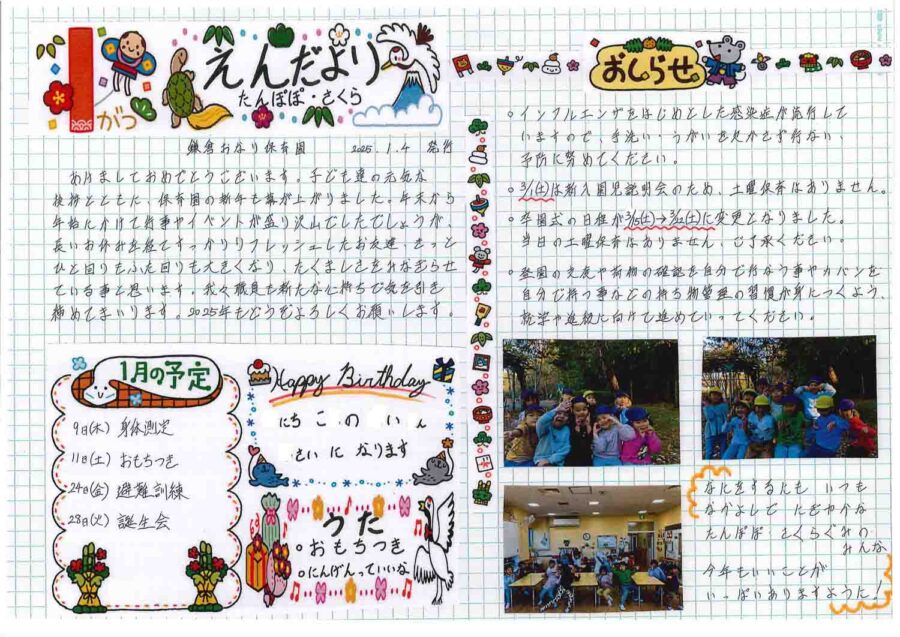 1がつ
えんだより
たんぽぽ・さくら
鎌倉おなり保育園 2025.1.4 発行
あけましておめでとうございます。子ども達の元気な
挨拶とともに、保育園の新年も幕が上がりました。年末から
年始にかけて行事やイベントが盛り沢山でしたでしょうが、
長いお休みを経てすっかりリフレッシュしたお友達、きっと
ひと回りもふた回りも大きくなり、たくましさをみなぎらせ
ている事と思います。我々職員も新たな
締めてまいります。2025年もどうぞよろしくお願いします。
1月の予定
9日(木) 身体測定
11日(土) おもちつき
24日(金) 避難訓練
28日(火) 誕生会
Happy Birthday
にち こ の い ん
さい に なります
うた
○おもちつき
○にんげんっていいな
おしらせ
○インフルエンザをはじめとした感染症が流行して
いますので、手洗い・うがいを欠かさず行ない、
予防に努めてください。
○3/1(土)は新入園児説明会のため、土曜保育はありません。
○卒園式の日程が3/15(土)→3/22(土)に変更となりました。
当日の土曜保育はありません、ご了承ください。
○登園の支度や荷物の確認を自分で行なう事やカバンを
自分で持つ事などの持ち物管理の習慣が身につくよう、
就学や進級に向けて進めていってください。
なにをするにも いつも
なかよしで にぎやかな
たんぽぽ さくらぐみの
みんな
今年もいいことが
いっぱいありますように!